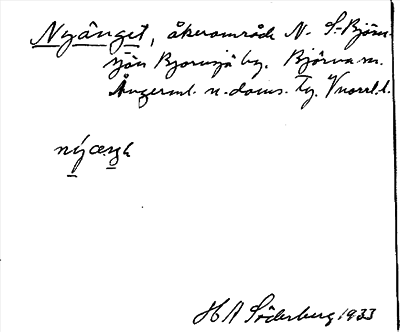 Nyänget, åkerområde N. S. Björn-
sjön Björnsjö by, Björna sn.
Ångerml. n. doms. Tg. Vnorrl. l.
nýæŋg̀e
H A Söderberg 1933